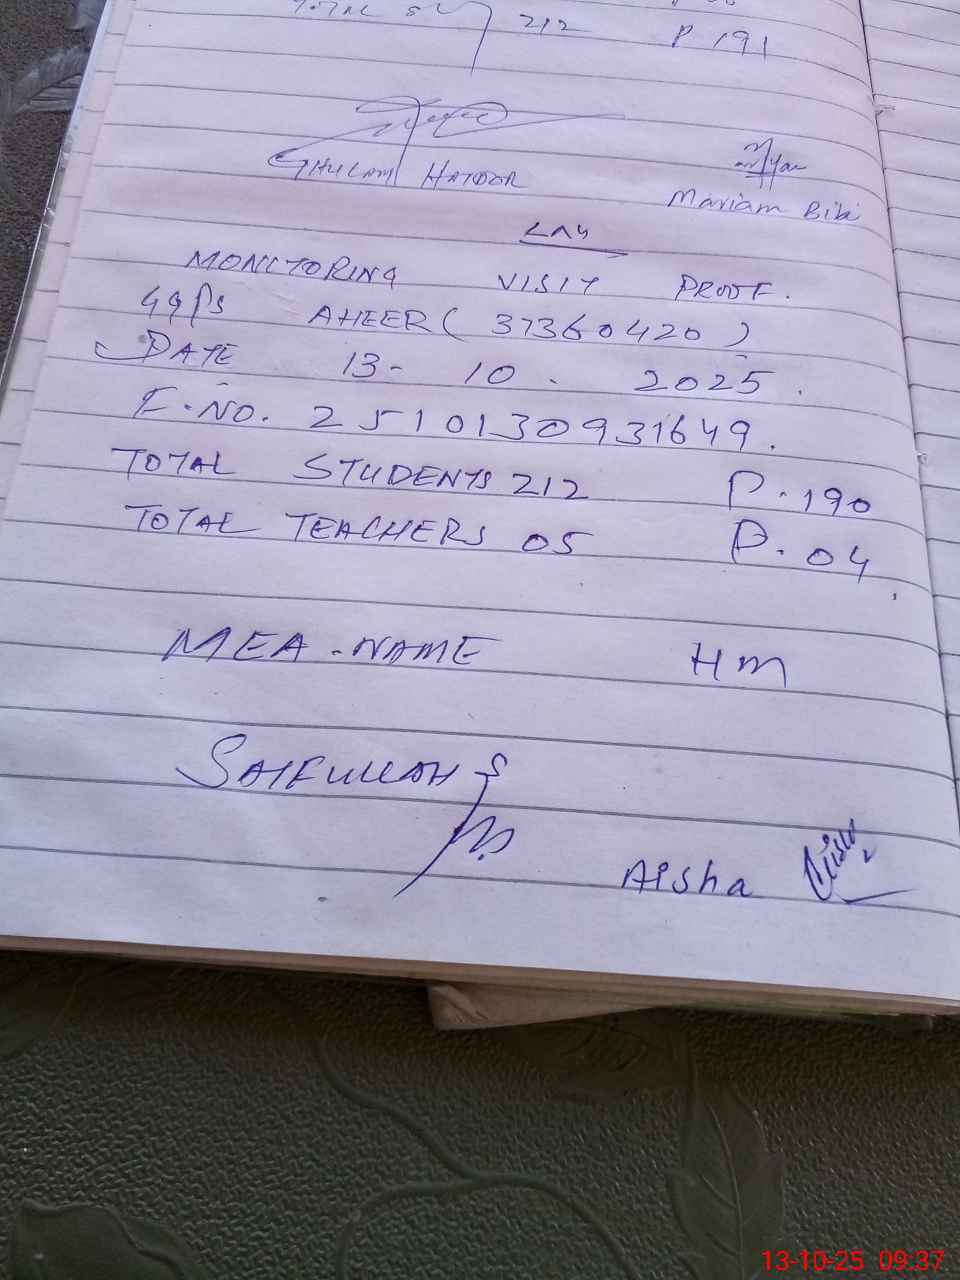 TOTAL 212 P 191
GHULAM HAIDER
Mariam Bibi
MONITORING VISIT PROOF.
GGPS AHEER ( 37360420 )
DATE 13- 10 . 2025.
F.NO. 2510130931649.
TOTAL STUDENTS 212 P.190
TOTAL TEACHERS 05 P.04
MEA-NAME HM
SAIFULLAH
Aisha
13-10-25 09:37